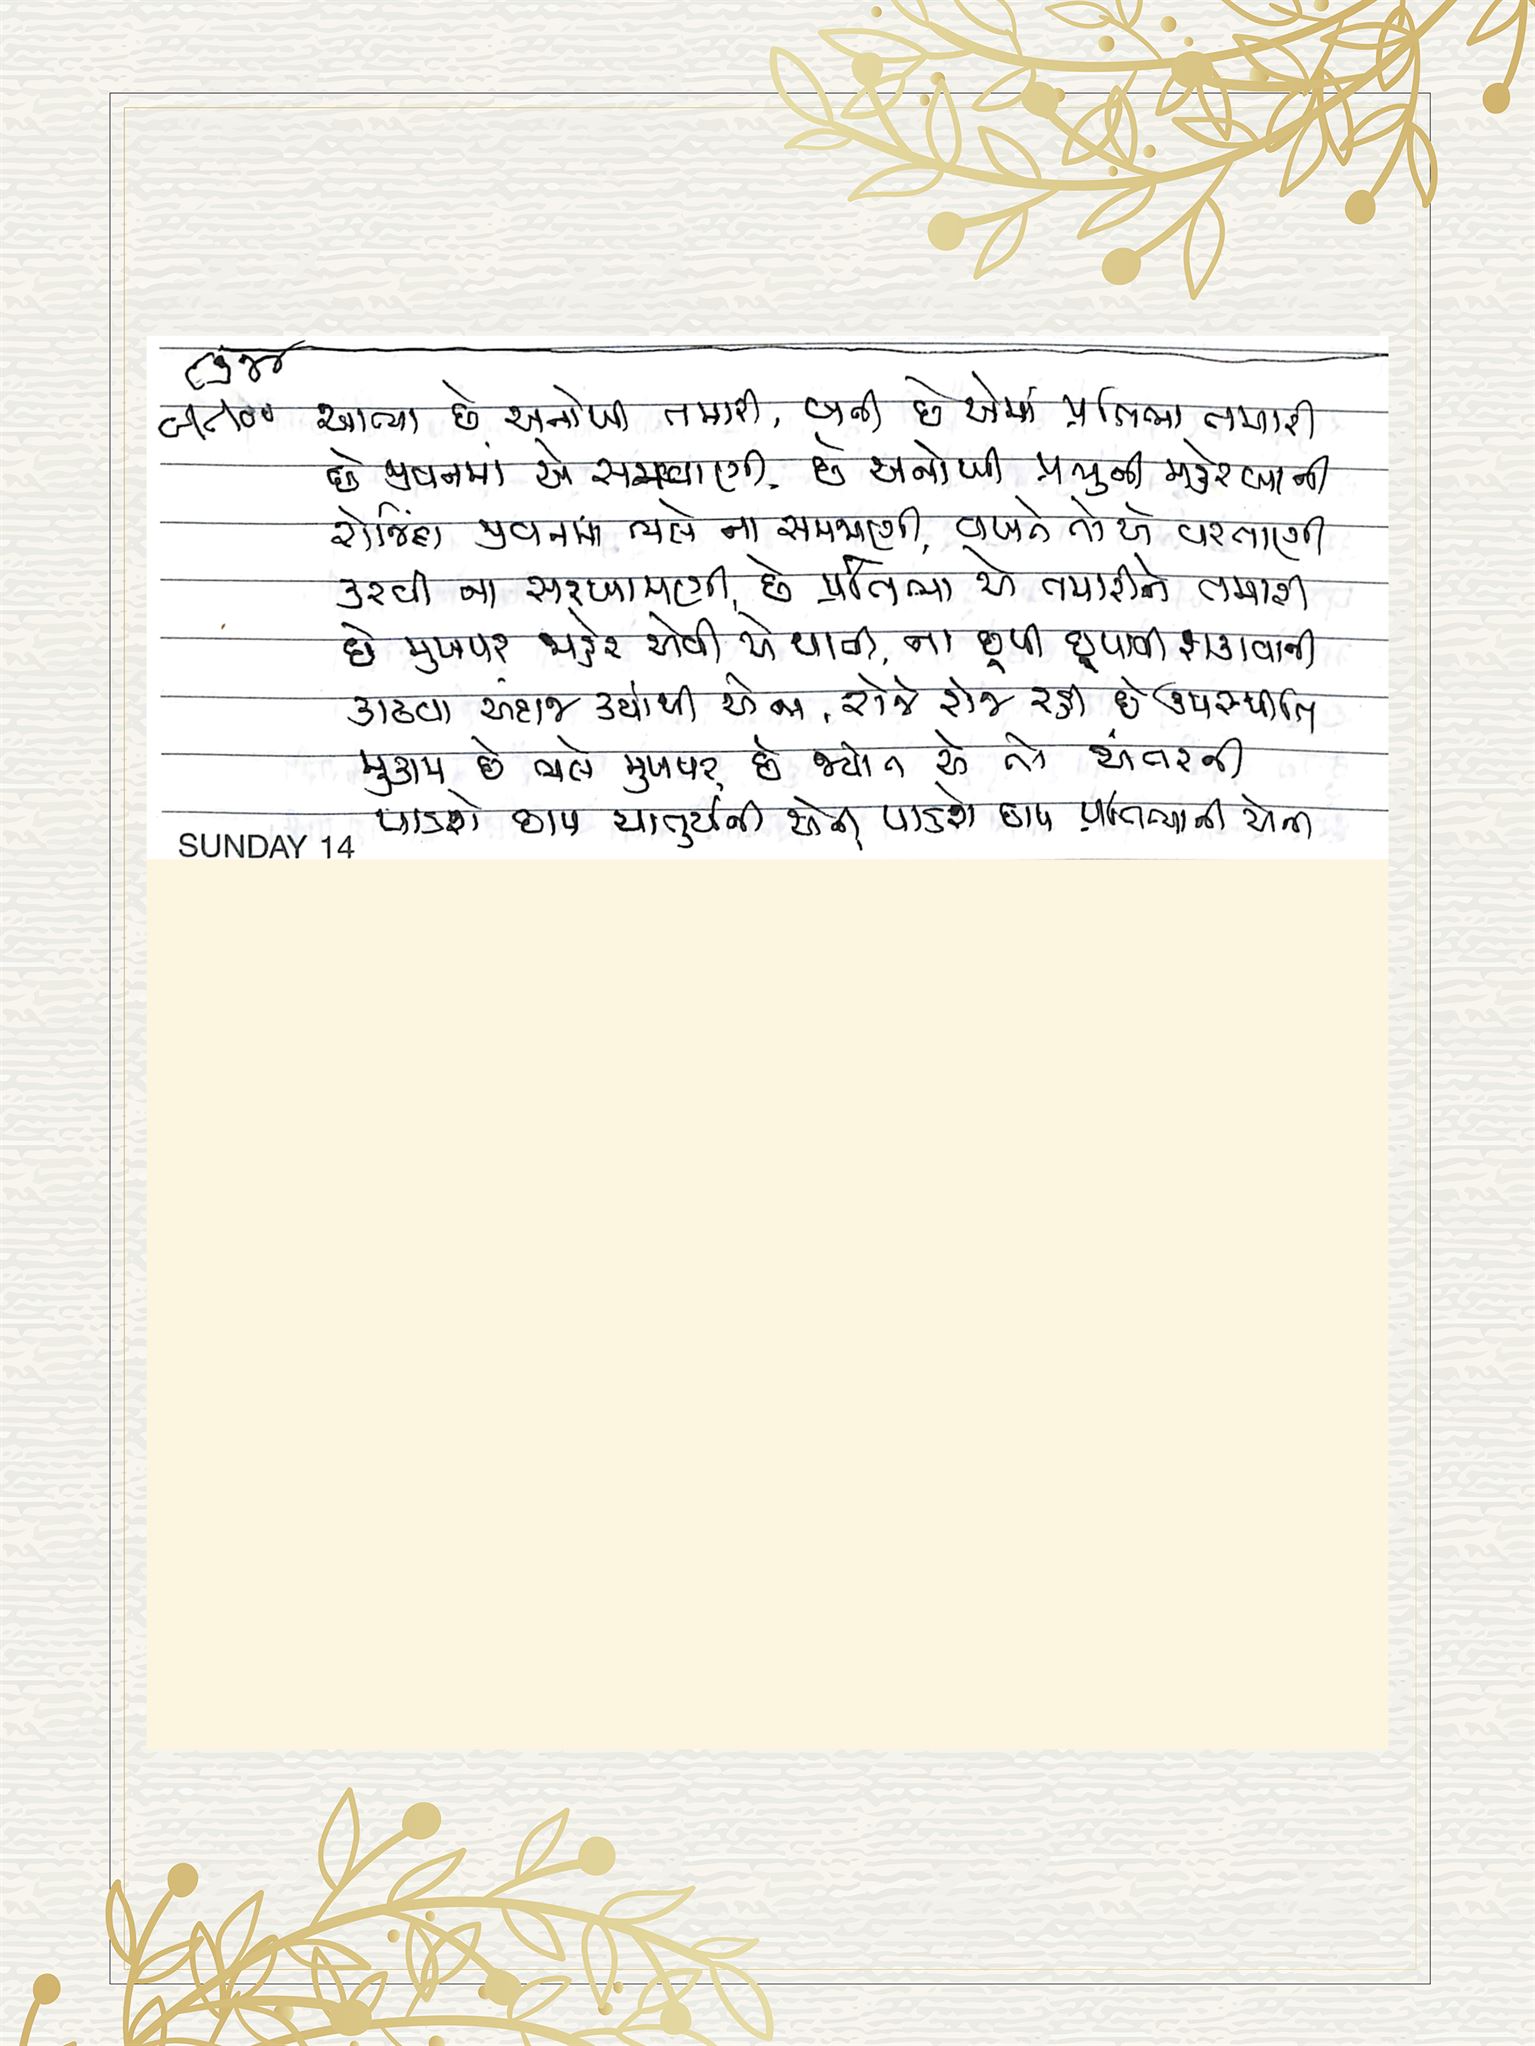 આભા છે અનોખી તમારી, બની છે એમાં પ્રતિભા તમારી
છે જીવનમાં એ સમજવાણી, છે અનોખી પ્રભુની મહેરબાની
રોજિંદા જીવનમાં ભલે ના સમજાણી, વખતે તો એ વરતાણી
કરવી ના સરખામણી, છે પ્રતિભા એ તમારીને તમારી
છે મુખપર મહેર એવી એ થાતી, ના છૂપી છૂપાવી શકાવાની
કાઢવા અંદાજ ક્યાંથી એના, રોજે રોજ રહી છે ઉપસ્થીતિ
મુકામ છે ભલે મુખપર, છે જ્યોત એ તો અંતરની
પાડશે છાપ ચાતુર્યની એની, પાડશે છાપ પ્રતિભાની એની
SUNDAY 14